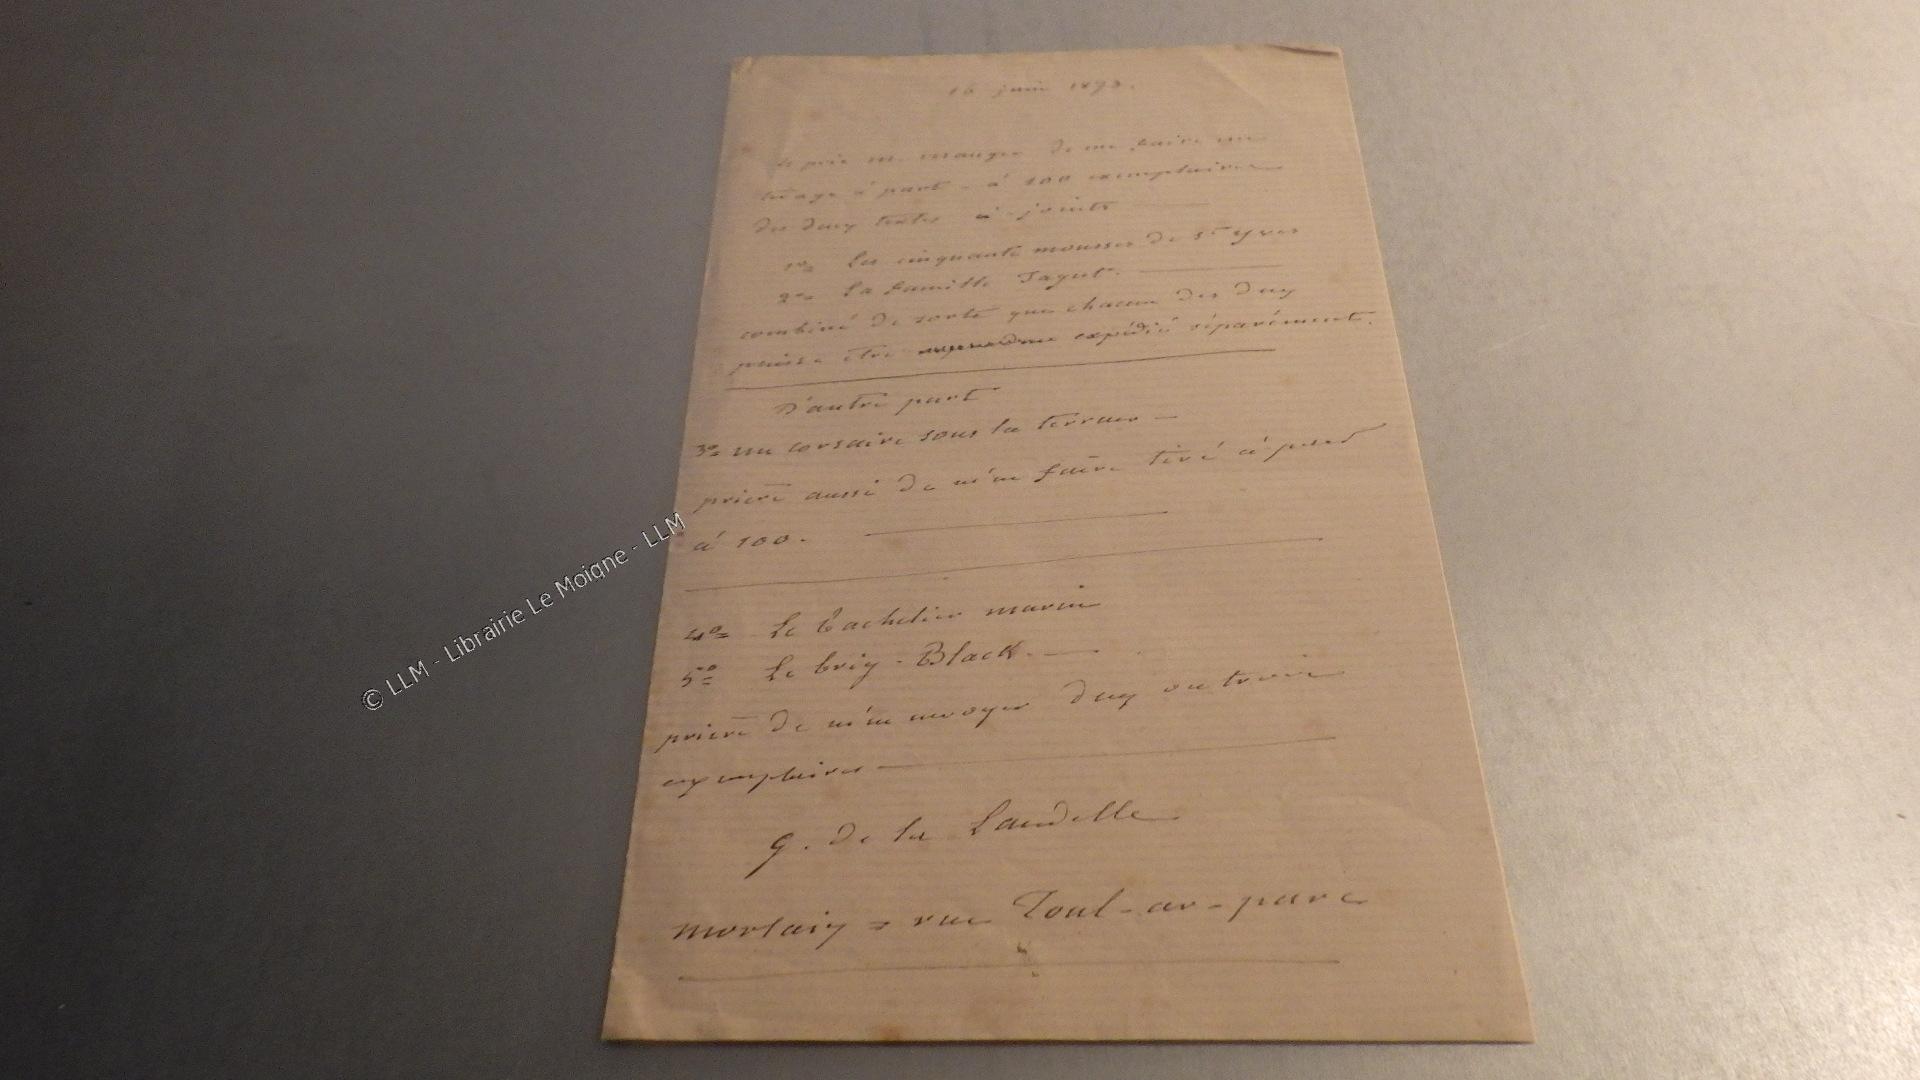 16 juin 1893.
prie M. de me faire un
tirage à part - à 100 exemplaires
des deux textes ci-joints
1º= Les cinquante mousses de St Yves
2º= La famille
combiné de sorte que chacun des deux
puisse être expédié séparément.
D'autre part
3º= un corsaire sous la terreur -
prière aussi de m'en faire tiré à part
à 100.
4º= Le bachelier marin
5º= Le brig-Black.
prière de m'en envoyer deux ou trois
exemplaires
G. de la Landelle
Morlaix = rue Toul-ar-parc
© LLM - Librairie Le Moigne - LLM